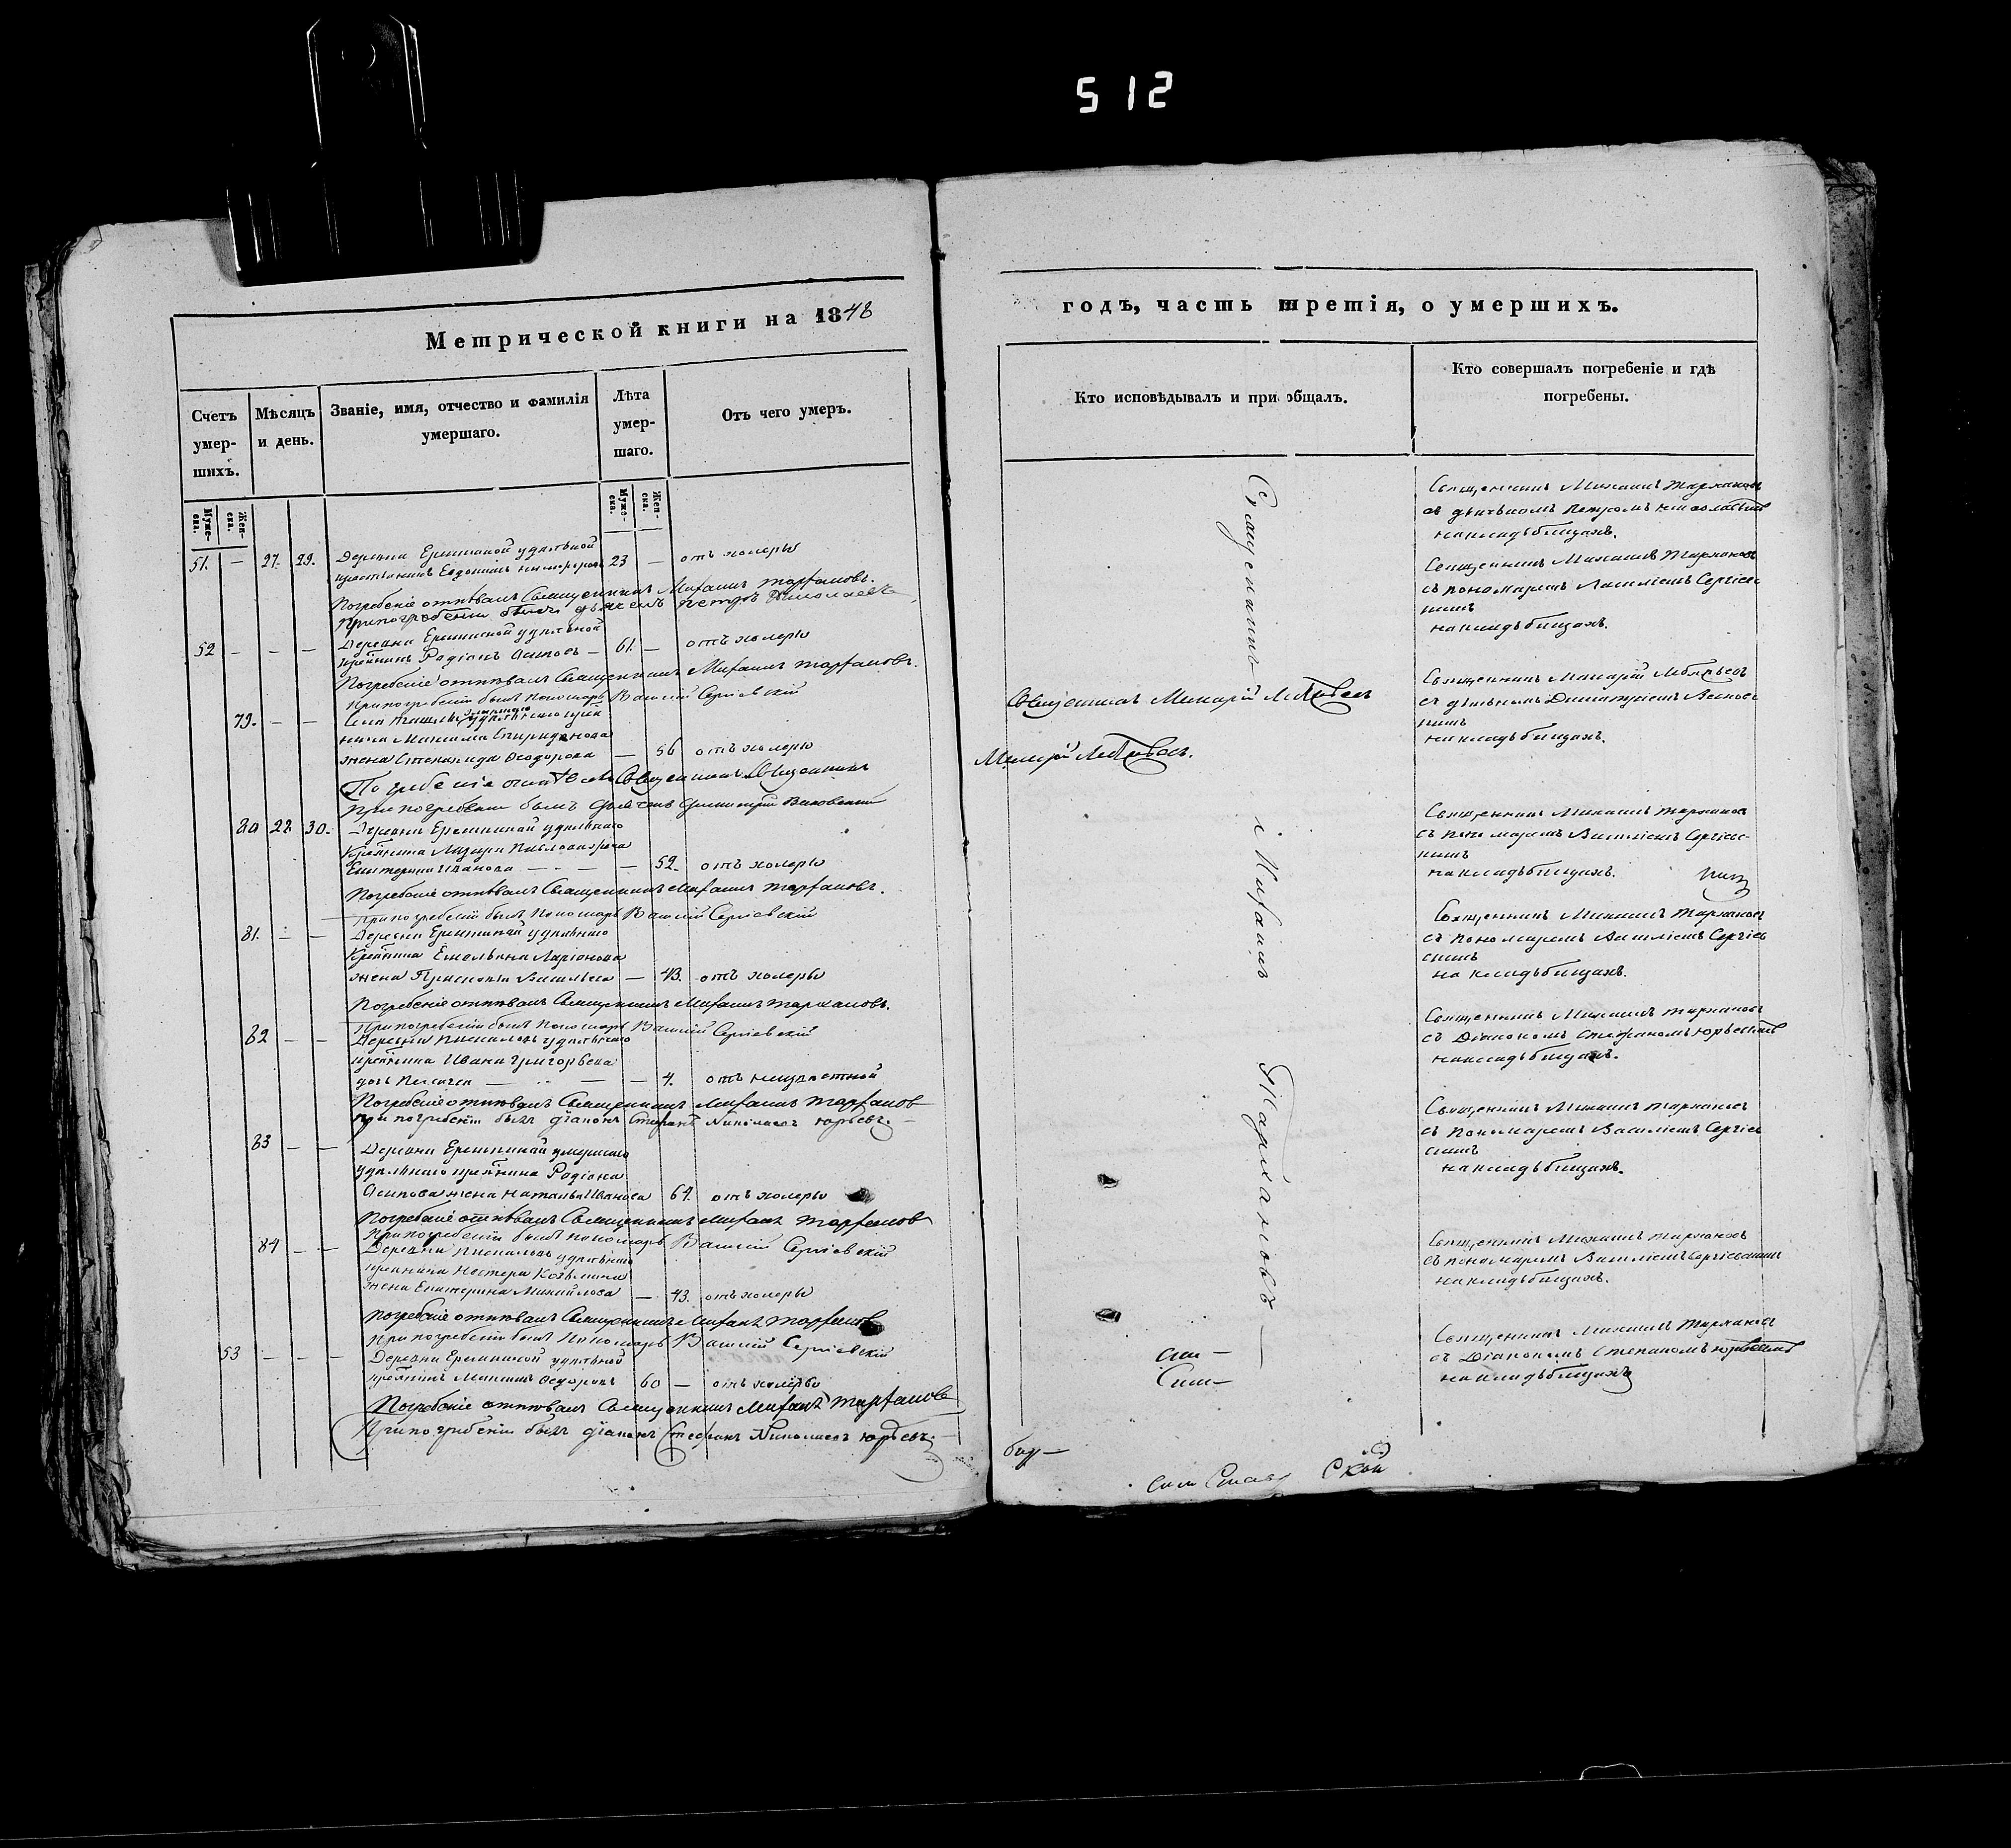 512
Метрической книги на 1848
Счетъ умер-шихъ.
Мѣсяцъ и день.
Званіе, имя, отчество и фамилія умершаго.
Лѣта умер-шаго.
Отъ чего умеръ.
Муже-ска.
Жен-ска.
Муже-ска.
Жен-ска.
51. — 27. 29. Деревни Еремкиной удѣльной
крестьянинъ Евдокимъ 23 — отъ холеры
Погребеніе отпѣвалъ Священникъ Михаилъ Тарханов.
При погребеніи былъ дьячекъ Петръ Николаевъ
52 — — — Деревни Еремкиной удѣльной
крестнинъ Родіонъ Осиповъ — 61. — отъ холеры
Погребеніе отпѣвалъ Священникъ Михаилъ Тарханов.
При погребеніи былъ Пономарь Василій Сергіевскій
79. — — Села удѣльнаго
Максима Спиридонова
жена Степанида Ѳеодорова — 56 отъ холеры
Погребеніе отпѣвалъ Священникъ Священникъ
При погребеніи былъ дьячекъ Димитрій
80 22 30. Деревни Еремкиной удѣльнаго
крестнина Лазаря
Екатерина Иванова — — — 52. отъ холеры
Погребеніе отпѣвалъ Священникъ Михаилъ Тарханов.
При погребеніи былъ Пономарь Василій Сергіевскій
81. — — Деревни Еремкиной удѣльнаго
Крестнина Емельяна Ларіонова
жена Прасковья Васильева — 43. отъ холеры
Погребеніе отпѣвалъ Священникъ Михаилъ Тарханов.
При погребеніи былъ Пономарь Василій Сергіевскій
82 — — Деревни удѣльнаго
крестнина Ивана Григорьева
дочь Пелагея — — — 4. отъ неизвѣстной
Погребеніе отпѣвалъ Священникъ Михаилъ Тарханов
при погребеніи былъ діаконъ Стефанъ Николаевъ Юрьевъ. —
83 — — Деревни Еремкиной
удѣльнаго крестнина Родіона
Осипова жена Наталья Иванова 64. отъ холеры
Погребеніе отпѣвалъ Священникъ Михаилъ Тарханов
При погребеніи былъ Пономарь Василій Сергіевскій
84 — — Деревни удѣльнаго
крестнина Нестера Козьмина
жена Екатерина Михайлова — 43. отъ холеры
Погребеніе отпѣвалъ Священникъ Михаилъ Тарханов
При погребеніи былъ Пономарь Василій Сергіевскій
53 — — — Деревни Еремкиной удѣльной
крестнинъ Максимъ Ѳедоровъ 60 — отъ холеры
Погребеніе отпѣвалъ Священникъ Михаилъ Тарханов
При погребеніи былъ діаконъ Стефанъ Николаевъ Юрьевъ. —
годъ, часть третія, о умершихъ.
Кто исповѣдывалъ и пріобщалъ.
Кто совершалъ погребеніе и гдѣ погребены.
Священникъ Михаилъ Тархановъ —
Священникъ Макарій
Макарій
Священникъ Михаилъ Тархановъ
съ дьячкомъ Петромъ
на кладьбищахъ.
Священникъ Михаилъ Тархановъ
съ пономаремъ Василіемъ Сергіев
скимъ
на кладьбищахъ.
Священникъ Макарій
съ дьячкомъ Димитріемъ
на кладьбищахъ.
Священникъ Михаилъ Тархановъ
съ пономаремъ Василіемъ Сергіевс-
кимъ
на кладьбищахъ.
Священникъ Михаилъ Тархановъ
съ пономаремъ Василіемъ Сергіев
скимъ
на кладьбищахъ.
Священникъ Михаилъ Тархановъ
съ Діакономъ Стефаномъ Юрьевымъ
на кладьбищахъ.
Священникъ Михаилъ Тархановъ
съ Пономаремъ Василіемъ Сергіев
скимъ
на кладьбищахъ.
Священникъ Михаилъ Тархановъ
съ пономаремъ Василіемъ Сергіевскимъ
на кладьбищахъ.
Священникъ Михаилъ Тархановъ
съ Діакономъ Степаномъ Юрьевымъ
на кладьбищахъ